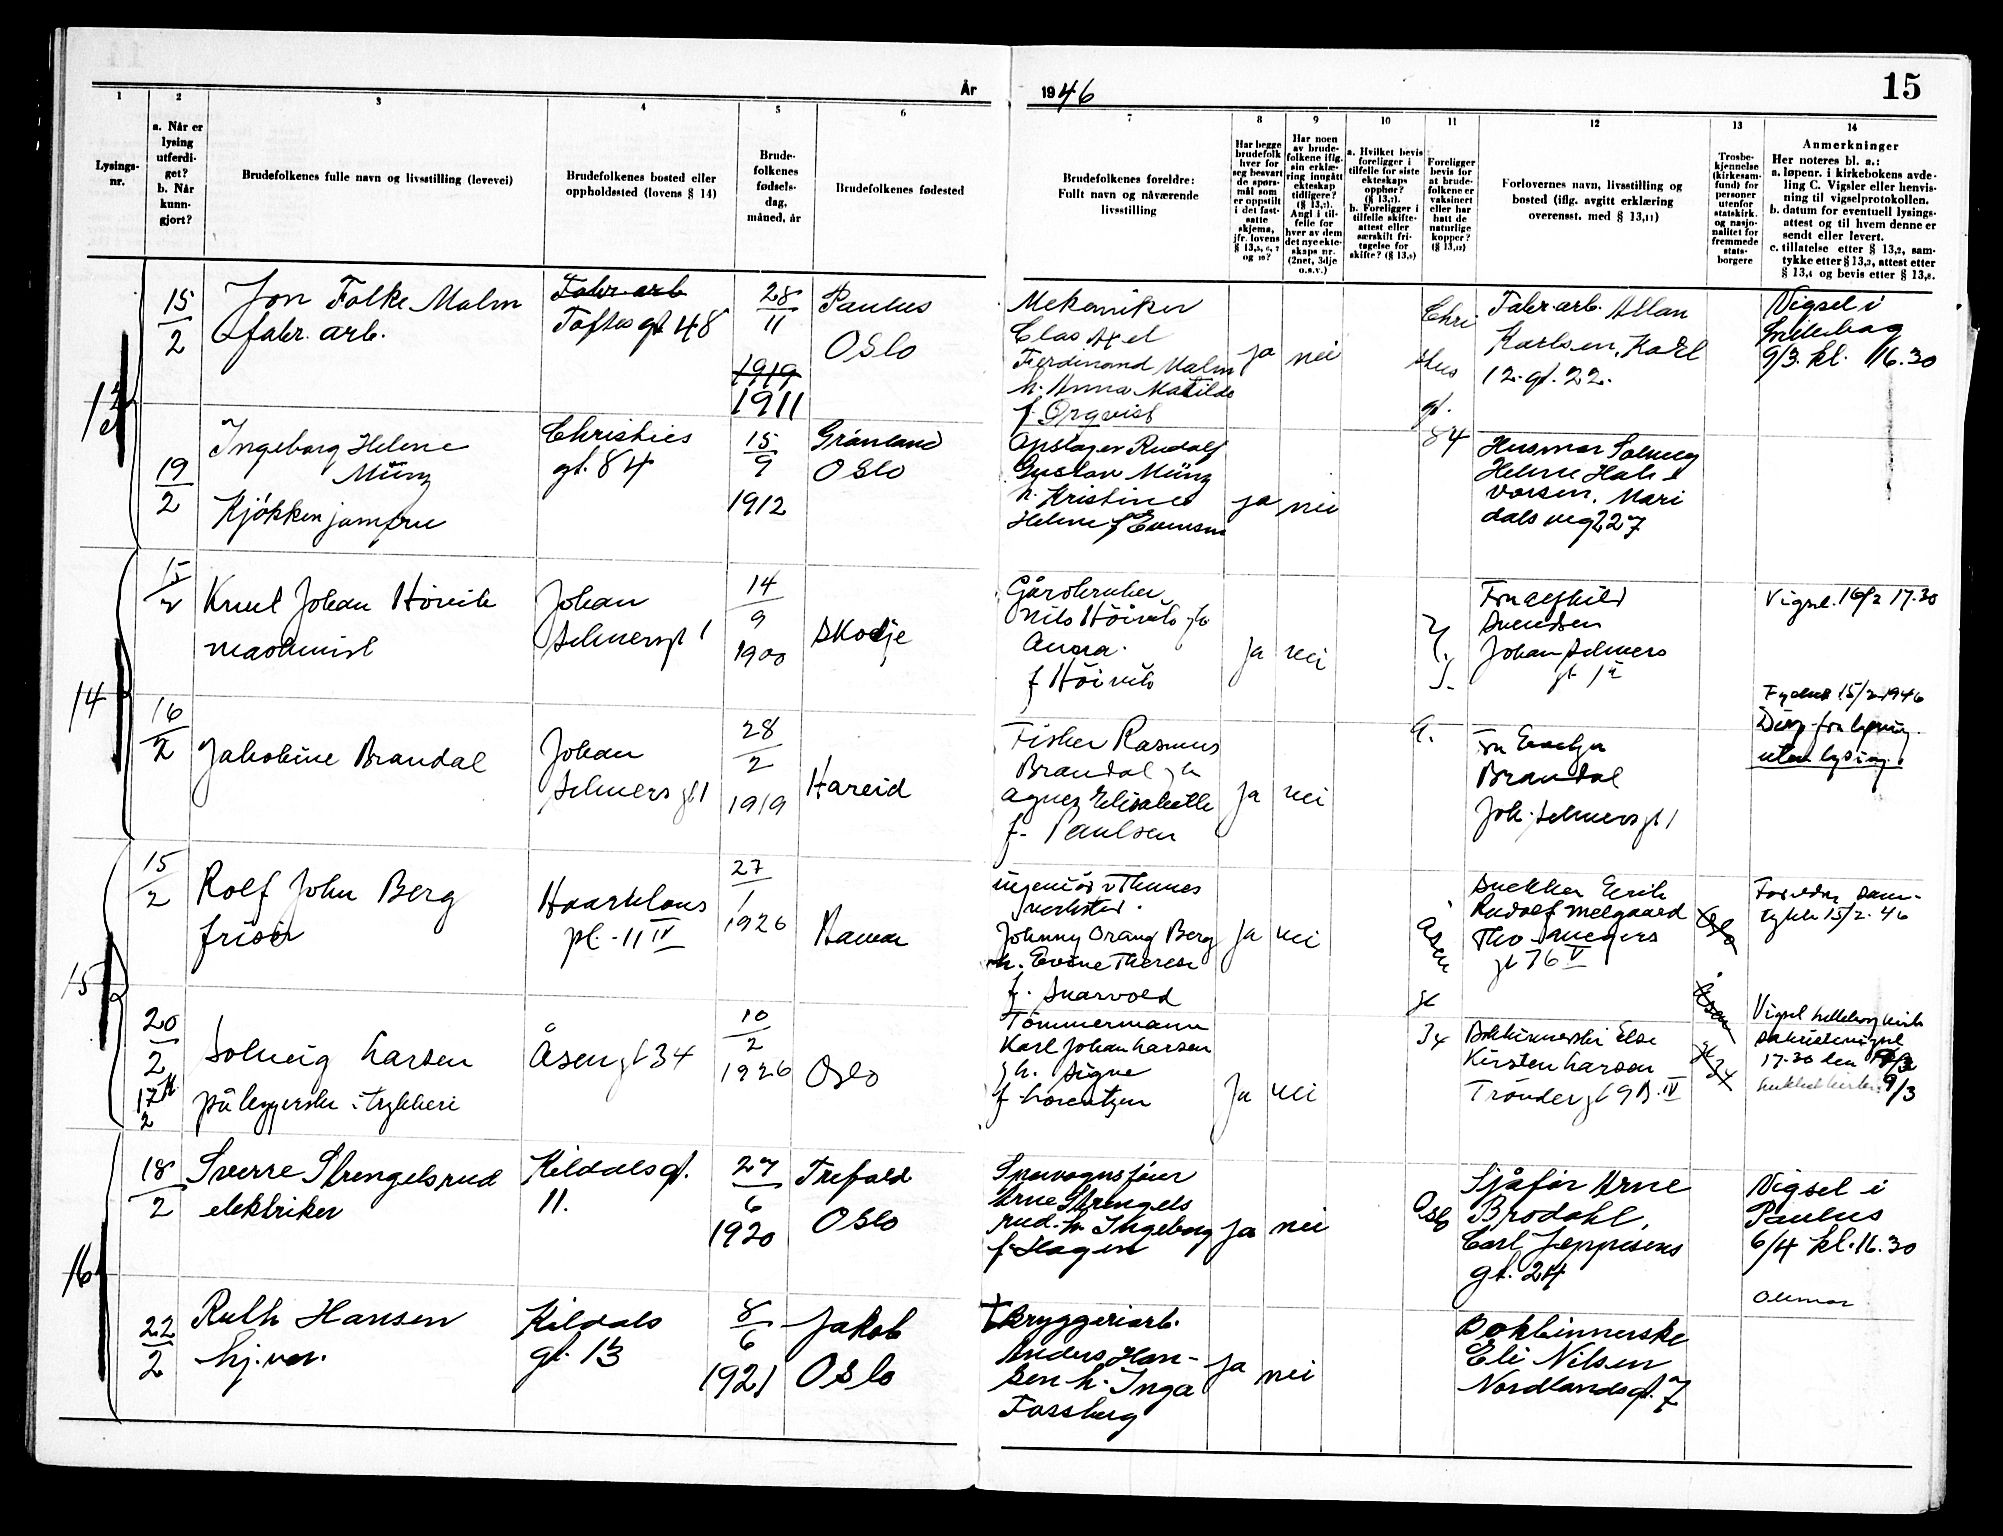 År
1946
15
1
2
3
4
5
6
7
8
9
10
11
12
13
14
Lysings-
nr.
a. Når er
lysing
utferdi-
get?
b. Når
kunn-
gjort?
Brudefolkenes fulle navn og livsstilling (levevei)
Brudefolkenes bosted eller
oppholdssted (lovens § 14)
Brude-
folkenes
fødsels-
dag,
måned, år
Brudefolkenes fødested
Brudefolkenes foreldre:
Fullt navn og nåværende
livsstilling
Har begge
brudefolk
hver for
seg besvart
de spørs-
mål som
er oppstilt
i det fast-
satte
skjema,
jfr. lovens
og 10?
Har noen
av brude-
folkene iflg.
sin erklæ-
ring inngått
ekteskap
tidligere?
(§ 13,7).
Angi i til-
felle for
hver av dem
det nye ekte-
skaps nr.
(2net, 3dje
o.s.v.)
a. Hvilket bevis
foreligger i
tilfelle for siste
ekteskaps
opphør?
(§ 13,7).
b. Foreligger i
tilfelle skifte-
attest eller
særskilt fri-
tagelse for
skifte? (§ 13,9)
Foreligger
bevis for
at brude-
folkene er
vaksinert
eller har
hatt de
naturlige
kopper?
(§ 13,12)
Forlovernes navn, livsstilling og
bosted (iflg. avgitt erklæring
overensst. med § 13,11)
Trosbe-
kjennelse
(kirkesam-
fund) for
personer
utenfor
statskirk.
og nasjo-
nalitet for
fremmede
stats-
borgere
Anmerkninger
Her noteres bl. a.:
a. løpenr. i kirkebokens avde-
ling C. Vigsler eller henvis-
ning til vigselprotokollen.
b. datum for eventuell lysings-
attest og til hvem denne er
sendt eller levert.
c. tillatelse etter § 13,2, sam-
tykke etter § 13,3, attest etter
§ 13,4 og bevis etter § 13,8.
13
15/2
Jon Folke Malm
fabr. arb.
Fabr. arb
Toftes gt 48
28/11
1919
1911
Paulus
Oslo
Mekaniker
Clas Axel
Ferdinand Malm
h. Anna Matilde
f. Örqvist
ja
nei
Chri
stus
gt.
84
Fabr. arb. Allan
Karlsen, Karl
12. gt. 22.
Vigsel i
Lilleborg
9/3. kl. 16.30
19/2
Ingeborg Helene
Münz
Kjøkkenjomfru
Christies
gt. 84
15/9
1912
Grønland
Oslo
Opslager Rudolf
Gustav Münz
h. Kristine
Helene f Evensen
ja
nei
Husmor Solveig
Helene Hal-
vorsen. Mari
dalsveg 227
14
15/2
Knut Johan Hövik
maskinist
Johan
Selmersgt 1
14/9
1900
Skodje
Gårdbruker
Nils Höivik gh
Anna
f Höivik
Ja
nei
Svendsen
Johan Selmers
gt 1
Vigsel 16/2 17.30
16/2
Jakobine Brandal
Johan
Selmers gt 1
28/2
1919
Hareid
Fisker Rasmus
Brandal gh
Agnes Elisabeth
f. Paulsen
Ja
nei
Brandal
Joh. Selmersgt 1
15/2 1946
Disp. fra lysning
uten lysing
15
15/2
Rolf John Berg
frisør
Haarklous
pl. 11 IV
27/1
1926
Hamar
ingeniør v Thunes
verksted.
Johnny Orang Berg
h. Evine Therese
f. Svarvold
Ja
nei
Åsen
gt
34
Snekker Erik
Rudolf Melgaard
Tho. Meyers
gt 76 V
Oslo
Foreldre sam-
tykke 15/2-46
20/2
17/2
Solveig Larsen
påleggerske i trykkeri
Åsengt 34
10/2
1926
Oslo
Tömmermann
Karl Johan Larsen
gh. Signe
f Lorentzen
Ja
nei
Bokbinnerske Else
Kirsten Larsen
Trøndergt 9 B. IV
Åsen
gt
34
Vigsel Lilleborg kirke
17.30 den
9/3
16
18/2
Sverre Strengelsrud
elektriker
Kildalsgt.
11.
27/6
1920
Trefold
Oslo
Sporvognsfører
Arne Strengels
rud. h. Ingeborg
f. Hagen
Ja
nei
Oslo
Sjåfør Arne
Brodahl,
Carl Jeppesens
gt. 24
Vigsel i
Paulus
6/4 kl. 16.30
22/2
Ruth Hansen
hj. vær.
Kildals
gt. 13
8/6
1921
Jakob
Oslo
Bryggeriarb.
Anders Han-
sen h. Inga
Fossberg
Ja
nei
Bokbinnerske
Eli Nilsen
Nordlandsgt. 7